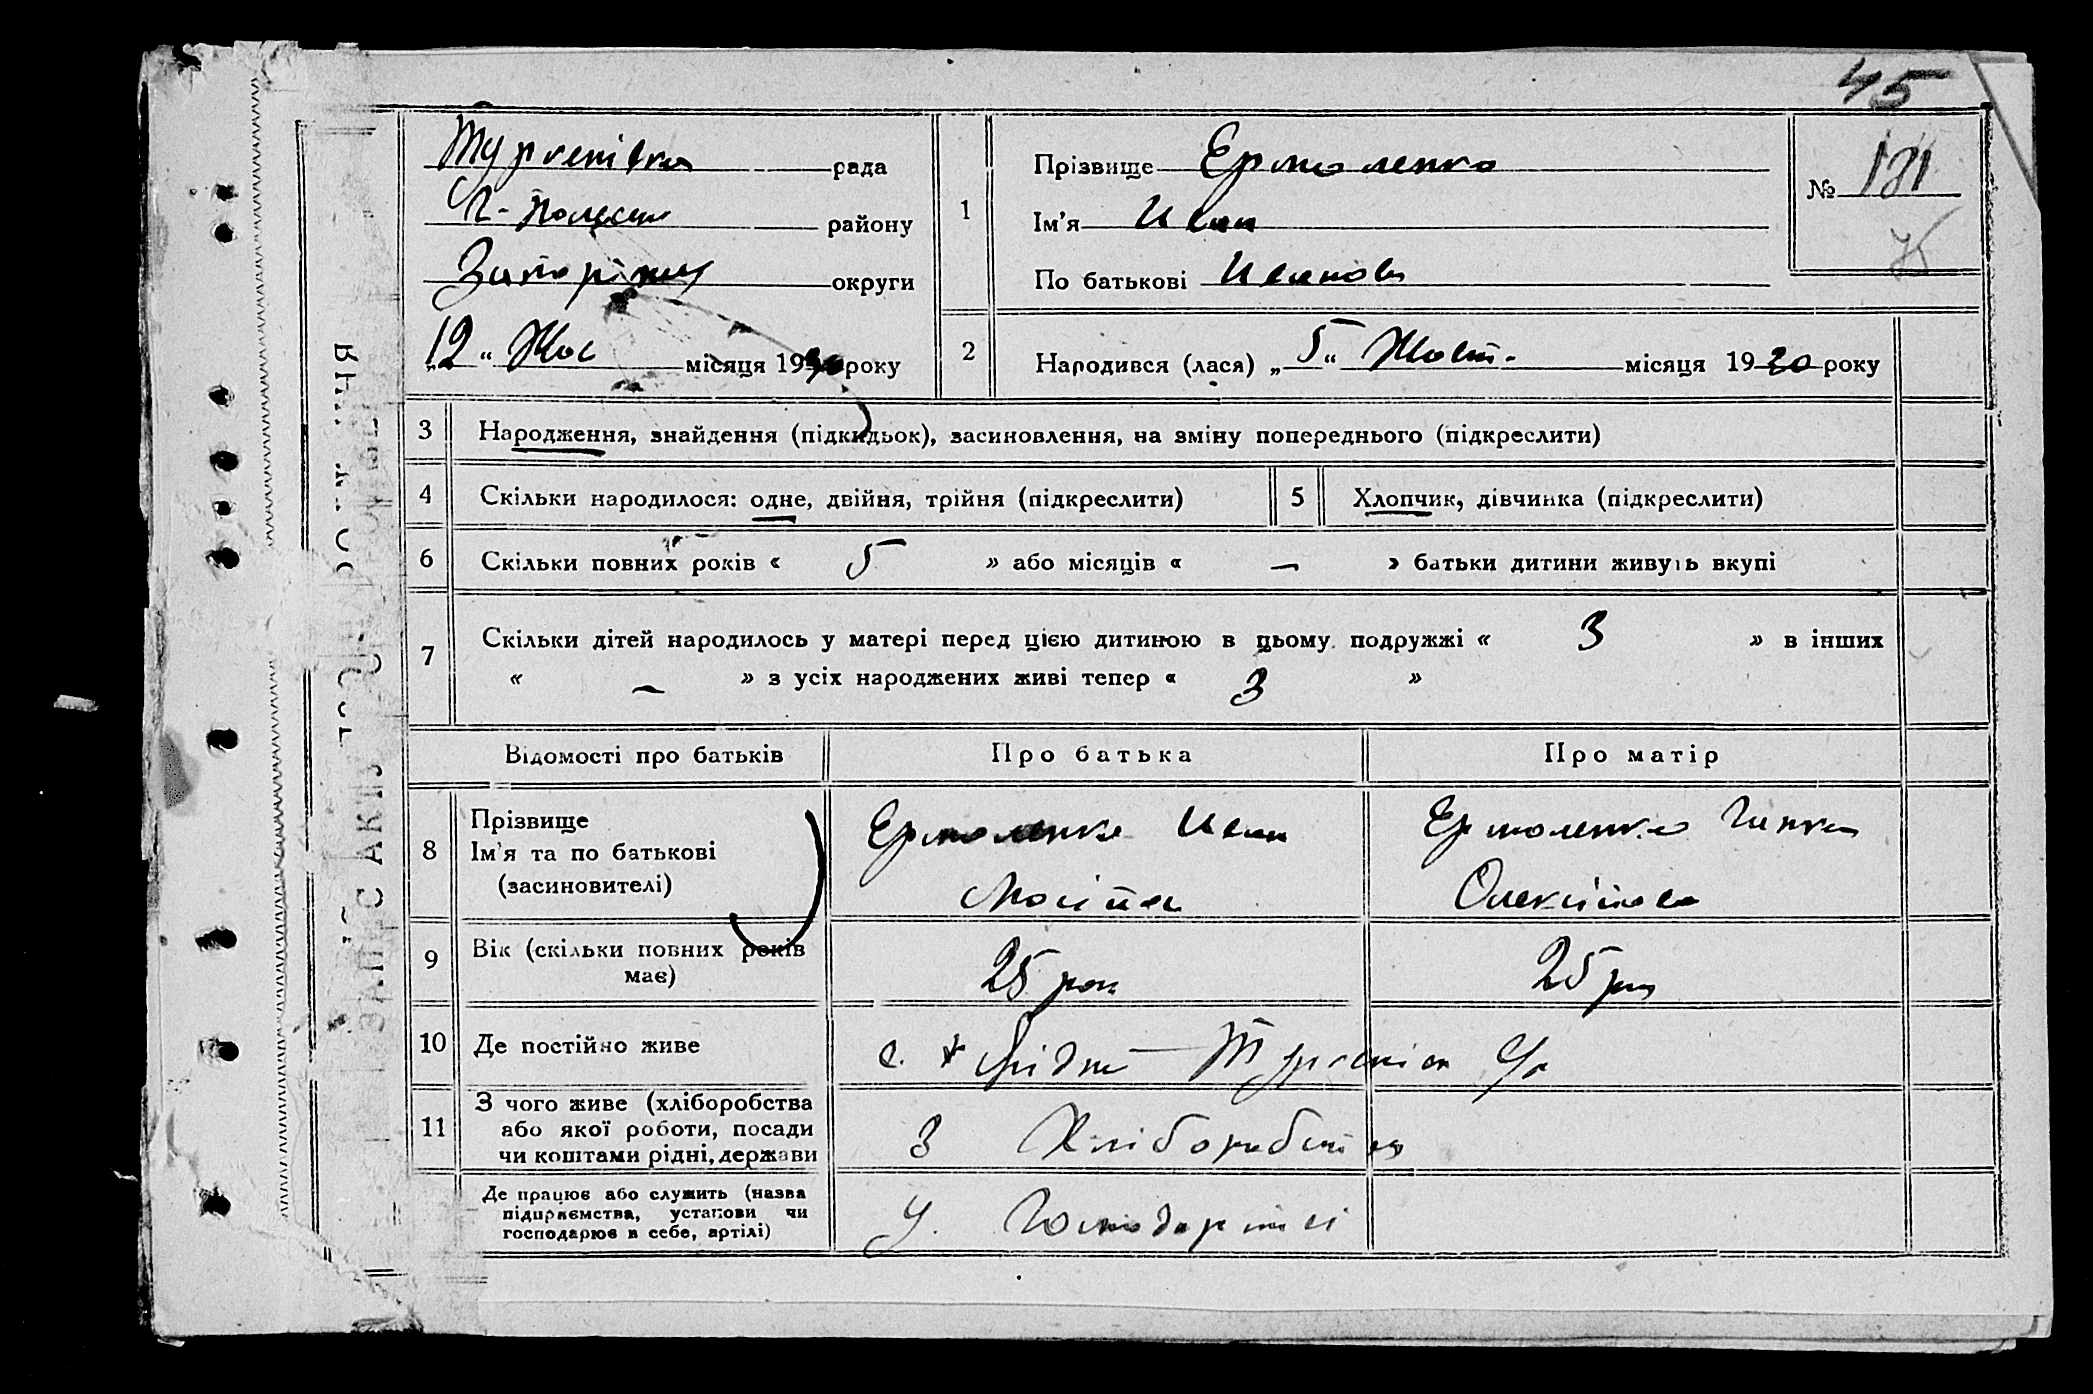 45
Тургенівка рада
Г-Польськ району
Запоріжж округи
„12“ Жов місяця 1930 року
1
Прізвище Ермоленко
Ім’я Иван
По батькові Иванов
№ 181
2
Народився (лася) „5“ Жовт. місяця 1930 року
3
Народження, знайдення (підкидьок), засиновлення, на зміну попереднього (підкреслити)
4
Скільки народилося: одне, двійня, трійня (підкреслити)
5
Хлопчик, дівчинка (підкреслити)
6
Скільки повних років « 5 » або місяців « — » батьки дитини живуть вкупі
7
Скільки дітей народилось у матері перед цією дитиною в цьому подружжі « 3 » в інших
« — » з усіх народжених живі тепер « 3 »
Відомості про батьків
Про батька
Про матір
8
Прізвище
Ім’я та по батькові
(засиновителі)
Ермоленко Иван
Ермоленко Ганна
Олексіївна
9
Вік (скільки повних років
має)
25 рок
25 рок
10
Де постійно живе
с.
11
З чого живе (хліборобства
або якої роботи, посади
чи коштами рідні, держави
З Хліборобства
Де працює або служить (назва
підприємства, установи чи
господарює в себе, артілі)
У. Господарстві
ЗАПИС АКТУ